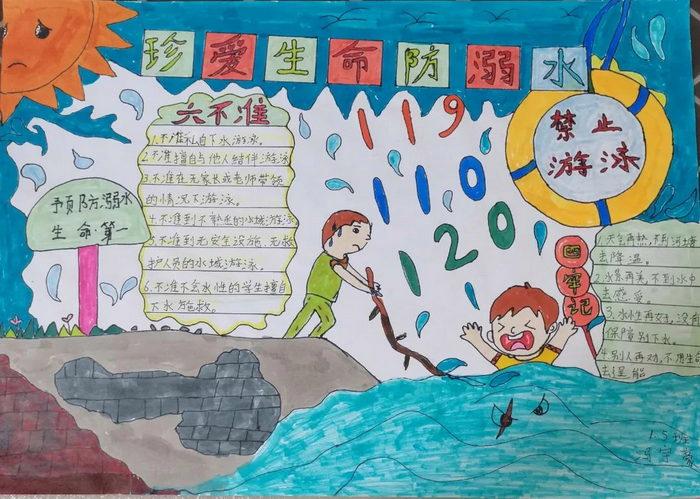 珍爱生命防溺水
六不准
1.不准私自下水游泳。
2.不准擅自与他人结伴游泳
3.不准在无家长或老师带领
的情况下游泳。
4.不准到不熟悉的水域游泳
5.不准到无安全设施、无救
护人员的水域游泳。
6.不准不会水性的学生擅自
下水施救。
预防溺水
生命第一
119
110
120
禁止
游泳
四牢记
1.天气再热,不到河塘
去降温。
2.水景再美,不到水中
去感受。
3.水性再好,没有
保障别下水。
4.别人再劝,不用生命
去逞能
1.5班